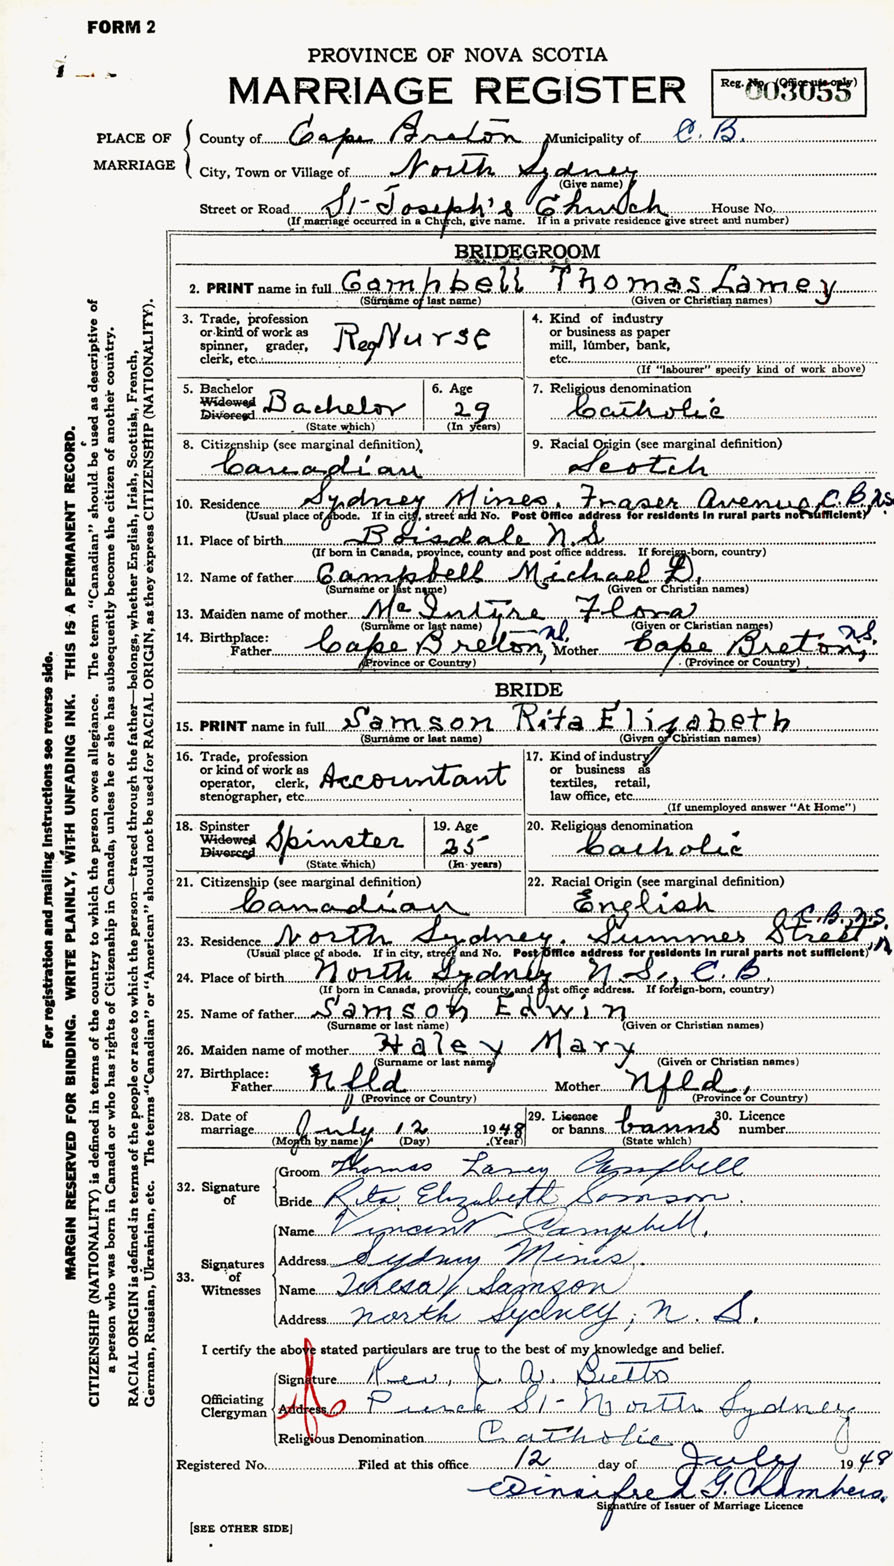 FORM 2
PROVINCE OF NOVA SCOTIA
MARRIAGE REGISTER
Reg. No. (Office use only)
003055
PLACE OF MARRIAGE
County of Cape Breton Municipality of C. B.
City, Town or Village of North Sydney
(Give name)
Street or Road St- Joseph's Church House No.
(If marriage occurred in a Church, give name. If in a private residence give street and number)
BRIDEGROOM
2. PRINT name in full Campbell Thomas Lamey
(Surname or last name) (Given or Christian names)
3. Trade, profession or kind of work as spinner, grader, clerk, etc. Reg Nurse
4. Kind of industry or business as paper mill, lumber, bank, etc.
(If "labourer" specify kind of work above)
5. Bachelor Widowed Divorced Bachelor
(State which)
6. Age 29
(In years)
7. Religious denomination
Catholic
8. Citizenship (see marginal definition)
Canadian
9. Racial Origin (see marginal definition)
Scotch
10. Residence Sydney Mines, Fraser Avenue, C.B., N.S.
(Usual place of abode. If in city, street and No. Post Office address for residents in rural parts not sufficient)
11. Place of birth Boisdale N.S
(If born in Canada, province, county and post office address. If foreign-born, country)
12. Name of father Campbell Michael D.
(Surname or last name) (Given or Christian names)
13. Maiden name of mother McIntyre Flora
(Surname or last name) (Given or Christian names)
14. Birthplace:
Father Cape Breton, N.S. Mother Cape Breton, N.S.
(Province or Country) (Province or Country)
BRIDE
15. PRINT name in full Samson Rita Elizabeth
(Surname or last name) (Given or Christian names)
16. Trade, profession or kind of work as operator, clerk, stenographer, etc. Accountant
17. Kind of industry or business as textiles, retail, law office, etc.
(If unemployed answer "At Home")
18. Spinster Widowed Divorced Spinster
(State which)
19. Age 25
(In years)
20. Religious denomination
Catholic
21. Citizenship (see marginal definition)
Canadian
22. Racial Origin (see marginal definition)
English
23. Residence North Sydney. Summer Street, C.B. N.S.
(Usual place of abode. If in city, street and No. Post Office address for residents in rural parts not sufficient)
24. Place of birth North Sydney N.S., C.B.
(If born in Canada, province, county and post office address. If foreign-born, country)
25. Name of father Samson Edwin
(Surname or last name) (Given or Christian names)
26. Maiden name of mother Haley Mary
(Surname or last name) (Given or Christian names)
27. Birthplace:
Father Nfld Mother Nfld,
(Province or Country) (Province or Country)
28. Date of marriage July 12 1948
(Month by name) (Day) (Year)
29. Licence or banns banns
(State which)
30. Licence number
32. Signature of
Groom Thomas Lamey Campbell
Bride Rita Elizabeth Samson.
33. Signatures of Witnesses
Name Vincent Campbell,
Address Sydney Mines.
Name Teresa Samson
Address North Sydney, N. S.
I certify the above stated particulars are true to the best of my knowledge and belief.
Officiating Clergyman
Signature Rev, J. A. Butts
Address Pierce St- North Sydney
Religious Denomination Catholic
Registered No. Filed at this office 12 day of July 1948
Winnifred G. Chambers,
Signature of Issuer of Marriage Licence
[SEE OTHER SIDE]
For registration and mailing instructions see reverse side.
MARGIN RESERVED FOR BINDING. WRITE PLAINLY, WITH UNFADING INK. THIS IS A PERMANENT RECORD.
CITIZENSHIP (NATIONALITY) is defined in terms of the country to which the person owes allegiance. The term "Canadian" should be used as descriptive of
a person who was born in Canada or who has rights of Citizenship in Canada, unless he or she has subsequently become the citizen of another country.
RACIAL ORIGIN is defined in terms of the people or race to which the person—traced through the father—belongs, whether English, Irish, Scottish, French,
German, Russian, Ukrainian, etc. The terms "Canadian" or "American" should not be used for RACIAL ORIGIN, as they express CITIZENSHIP (NATIONALITY).